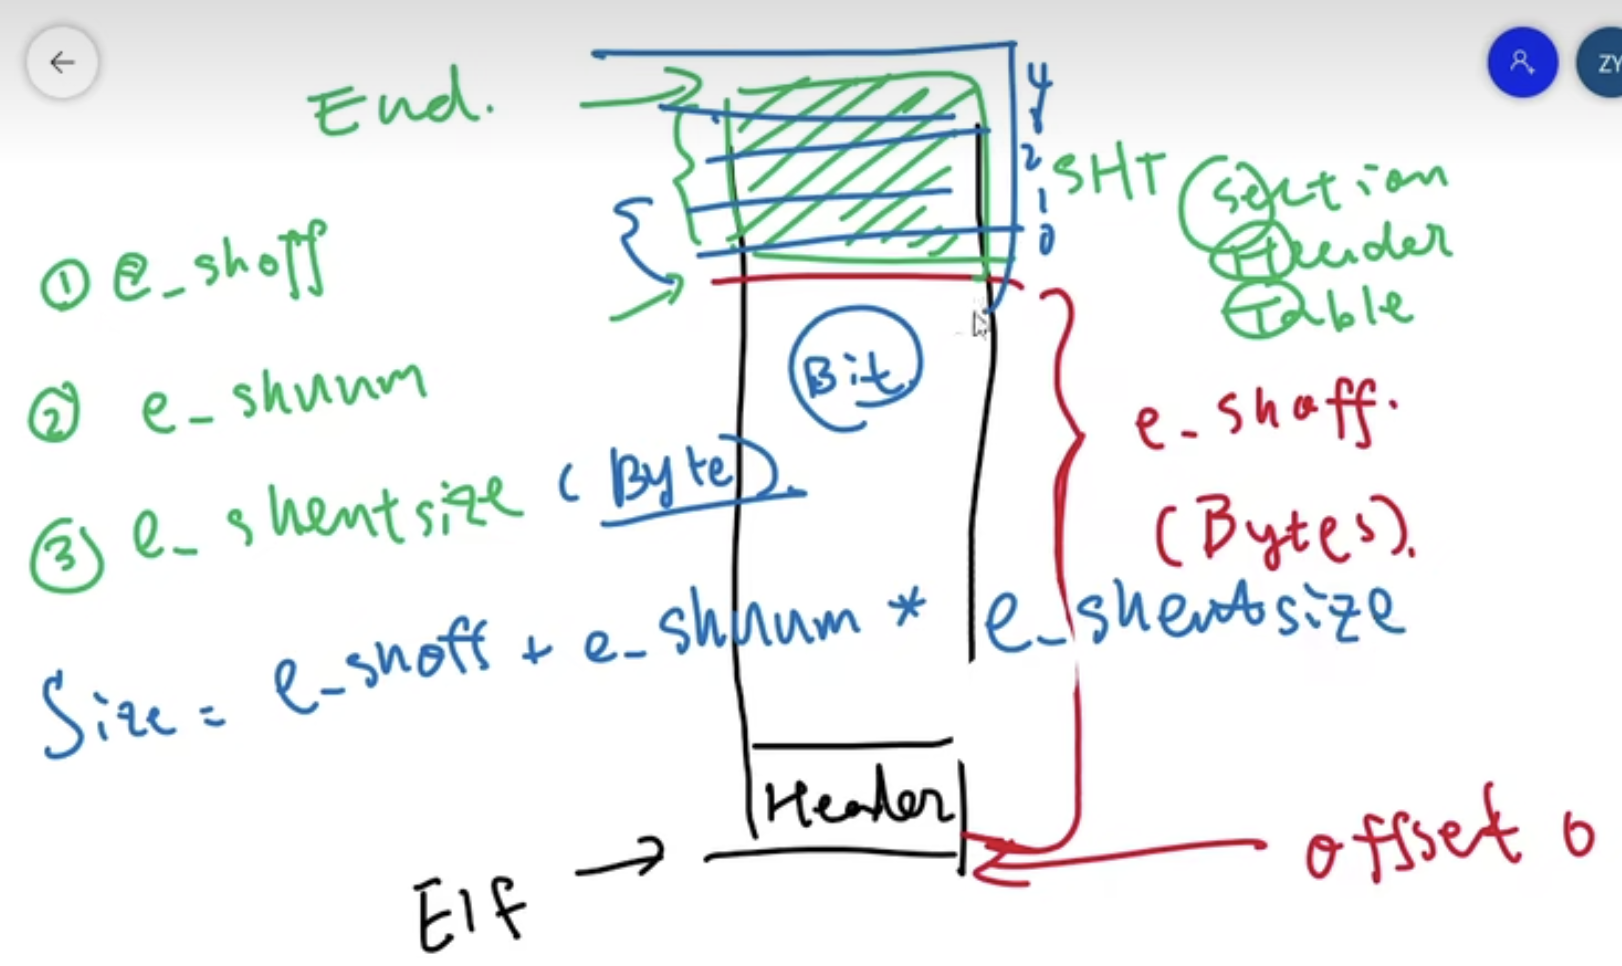 End.
4
3
2
1
0
SHT Section
Header
Table
① e_shoff
② e_shnum
③ e_shentsize (Byte).
Bit
e_shoff.
(Bytes).
Size = e_shoff + e_shnum * e_shentsize
Header
Elf
offset 0
ZY